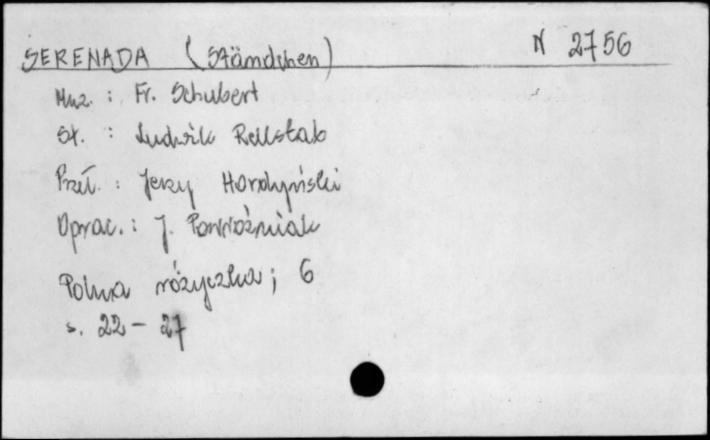 SERENADA (Ständchen) N 2756
Muz. : Fr. Schubert
Sł. : Ludwik Rellstab
Przeł. : Jerzy Hordyński
Oprac. : J. Powroźniak
Polna różyczka ; 6
s. 22 - 27